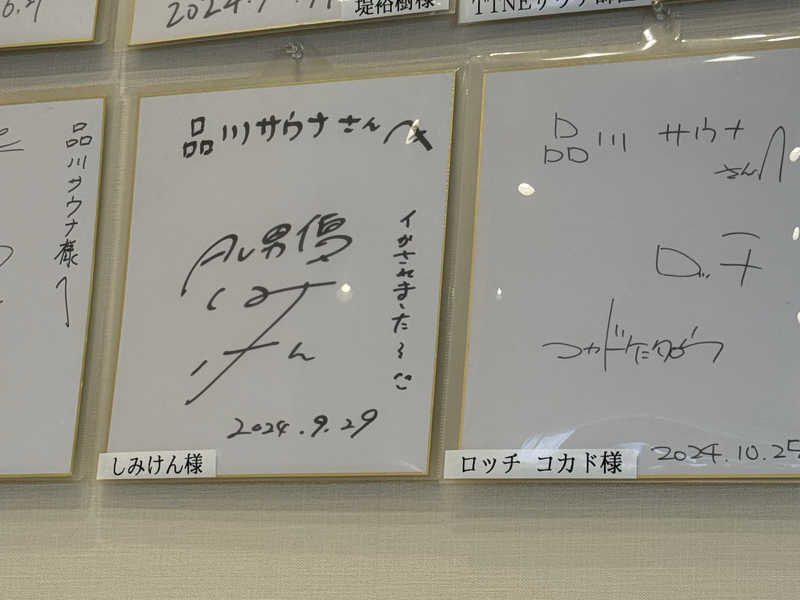 堤裕樹様
品川サウナ様へ
品川サウナさんへ
AV男優
しみけん
イかされました〜
2024.9.29
しみけん様
品川サウナ
さんへ
ロッチ
コカドケンタロウ
2024.10.25
ロッチ コカド様